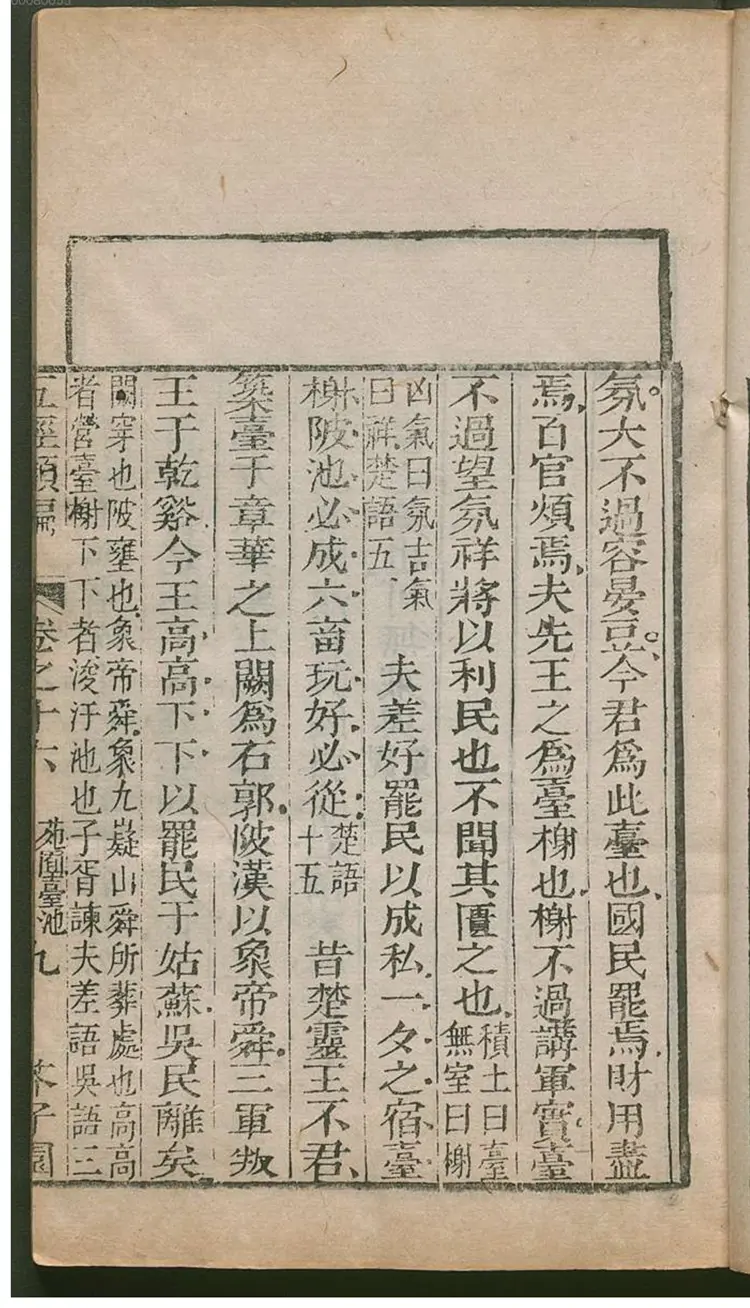 氛大不過容宴豆今君為此臺也國民罷焉財用盡
焉百官煩焉夫先王之爲臺榭也榭不過講軍實臺
不過望氛祥將以利民也不聞其匱之也積土曰臺
無室曰榭
凶氣曰氛吉氣
曰祥楚語五
夫差好罷民以成私一夕之宿臺
榭陂池必成六畜玩好必從楚語
十五
昔楚靈王不君
築臺于章華之上闕爲石郭陂漢以象帝舜三軍叛
王于乾谿今王高高下下以罷民于姑蘇吳民離矣
闕穿也陂壅也象帝舜象九嶷山舜所葬處也高高
者營臺榭下下者浚汙池也子胥諫夫差語吳語三
五經類編
卷之十六
苑囿臺池
九
芥子園